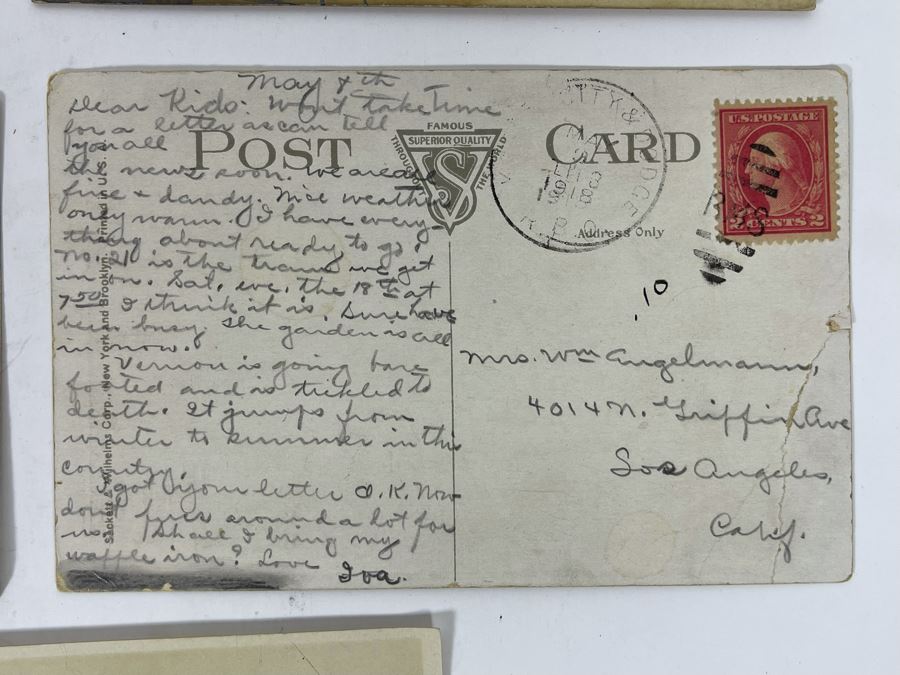 May 8th
Dear Kids: Won't take time
for a letter as can tell
you all
the news soon. We are all
fine & dandy. Nice weather
only warm. I have every-
thing about ready to go.
No. 21 is the train we get
in on. Sat. eve. the 18th at
7:50 I think it is. Sure have
been busy. The garden is all
in now.
Vernon is going bare
footed and is tickled to
death. It jumps from
winter to summer in this
country.
I got your letter O.K. Now
don't fuss around a lot for
us. Shall I bring my
waffle iron? Love
Iva.
POST CARD
FAMOUS
SUPERIOR QUALITY
THROUGHOUT
THE WORLD
S
Sackett & Wilhelms Corp., New York and Brooklyn. Printed in U.S.
Address Only
& DODGE
R.P.O.
MAY
8
U.S. POSTAGE
2 CENTS 2
RMS
.10
Mrs. Wm Engelmann,
4014 N. Griffin Ave
Los Angeles,
Calif.